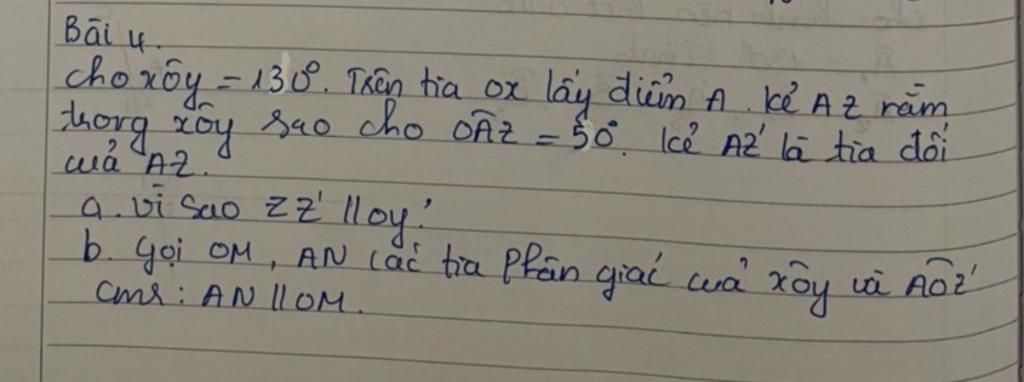 Bài 4.
Cho xÔy = 130°. Trên tia ox lấy điểm A. kẻ AZ nằm
trong xÔy sao cho OÂZ = 50°. kẻ AZ' là tia đối
của AZ.
a. Vì sao ZZ' // oy?
b. Gọi OM, AN các tia phân giác của xÔy và AÔZ'
Cmr: AN // OM.